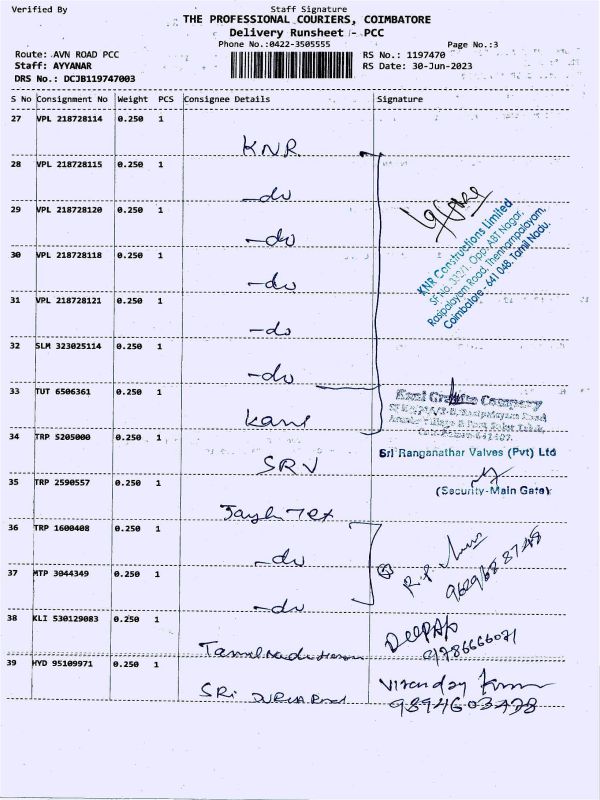 Verified By Staff Signature
THE PROFESSIONAL COURIERS, COIMBATORE
Delivery Runsheet - PCC
Phone No.:0422-3505555 Page No.:3
Route: AVN ROAD PCC RS No.: 1197470
Staff: AYYANAR RS Date: 30-Jun-2023
DRS No.: DCJB119747003
S No Consignment No Weight PCS Consignee Details Signature
27 VPL 218728114 0.250 1
KNR
28 VPL 218728115 0.250 1
-do
29 VPL 218728120 0.250 1
-do
30 VPL 218728118 0.250 1
-do
31 VPL 218728121 0.250 1
-do
32 SLM 323025114 0.250 1
-do
KNR Constructions Limited
SF No. 332/1, Opp. ABT Nagar,
Rasipalayam Road, Thennampalayam,
Coimbatore - 641 048. Tamil Nadu.
33 TUT 6506361 0.250 1
Kani
Granite Company
34 TRP 5205000 0.250 1
SRV
Sri Ranganathar Valves (Pvt) Ltd
(Security-Main Gate)
35 TRP 2590557 0.250 1
Tex
36 TRP 1600408 0.250 1
-do
37 MTP 3044349 0.250 1
-do
9629688748
38 KLI 530129083 0.250 1
Tamilnadu
DEEPAK
9786666071
39 HYD 95109971 0.250 1
SRi DURGA
Virenday Kumar
9894603478